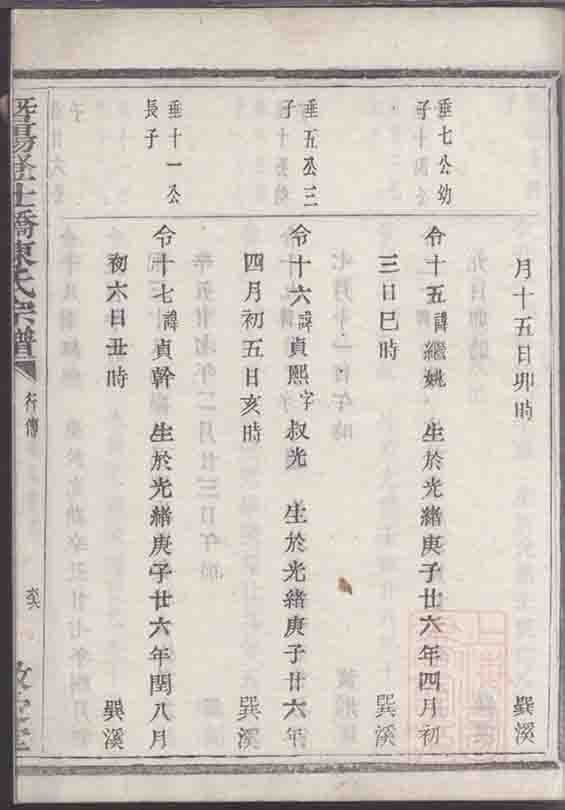 月十五日卯時 巽溪
垂七公幼
子
令十五諱繼姚 生於光緒庚子廿六年四月初
三日巳時 巽溪
垂五公三
子
令十六諱貞熙字叔光 生於光緒庚子廿六年
四月初五日亥時 巽溪
垂十一公
長子
令十七諱貞幹 生於光緒庚子廿六年閏八月
初六日丑時 巽溪
暨陽 陳氏宗譜
行傳